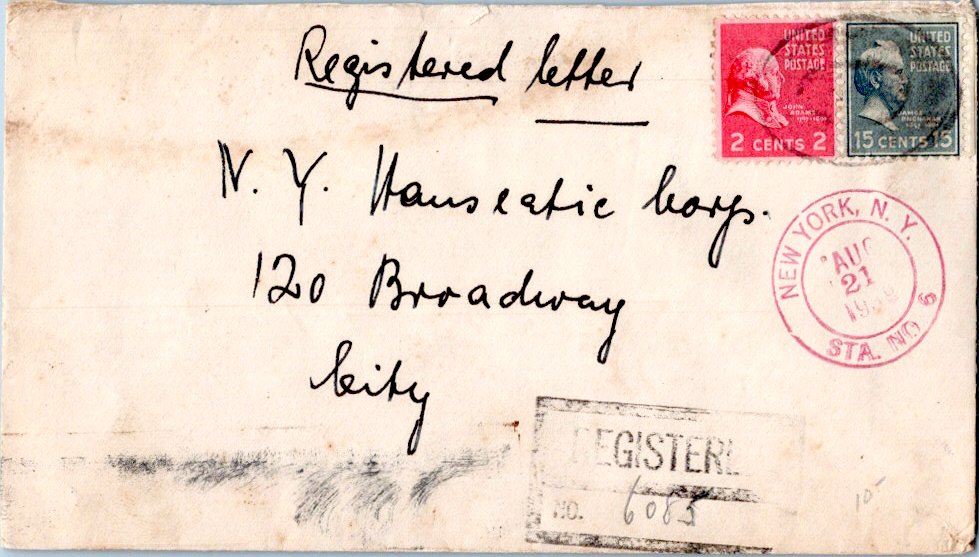 Registered letter
UNITED
STATES
POSTAGE
JOHN
ADAMS
2 CENTS 2
UNITED
STATES
POSTAGE
JAMES
BUCHANAN
15 CENTS 15
N. Y. Hanseatic Corp.
120 Broadway
City
NEW YORK, N. Y.
AUG
21
STA. NO 6
REGISTERED
NO. 6085
10-